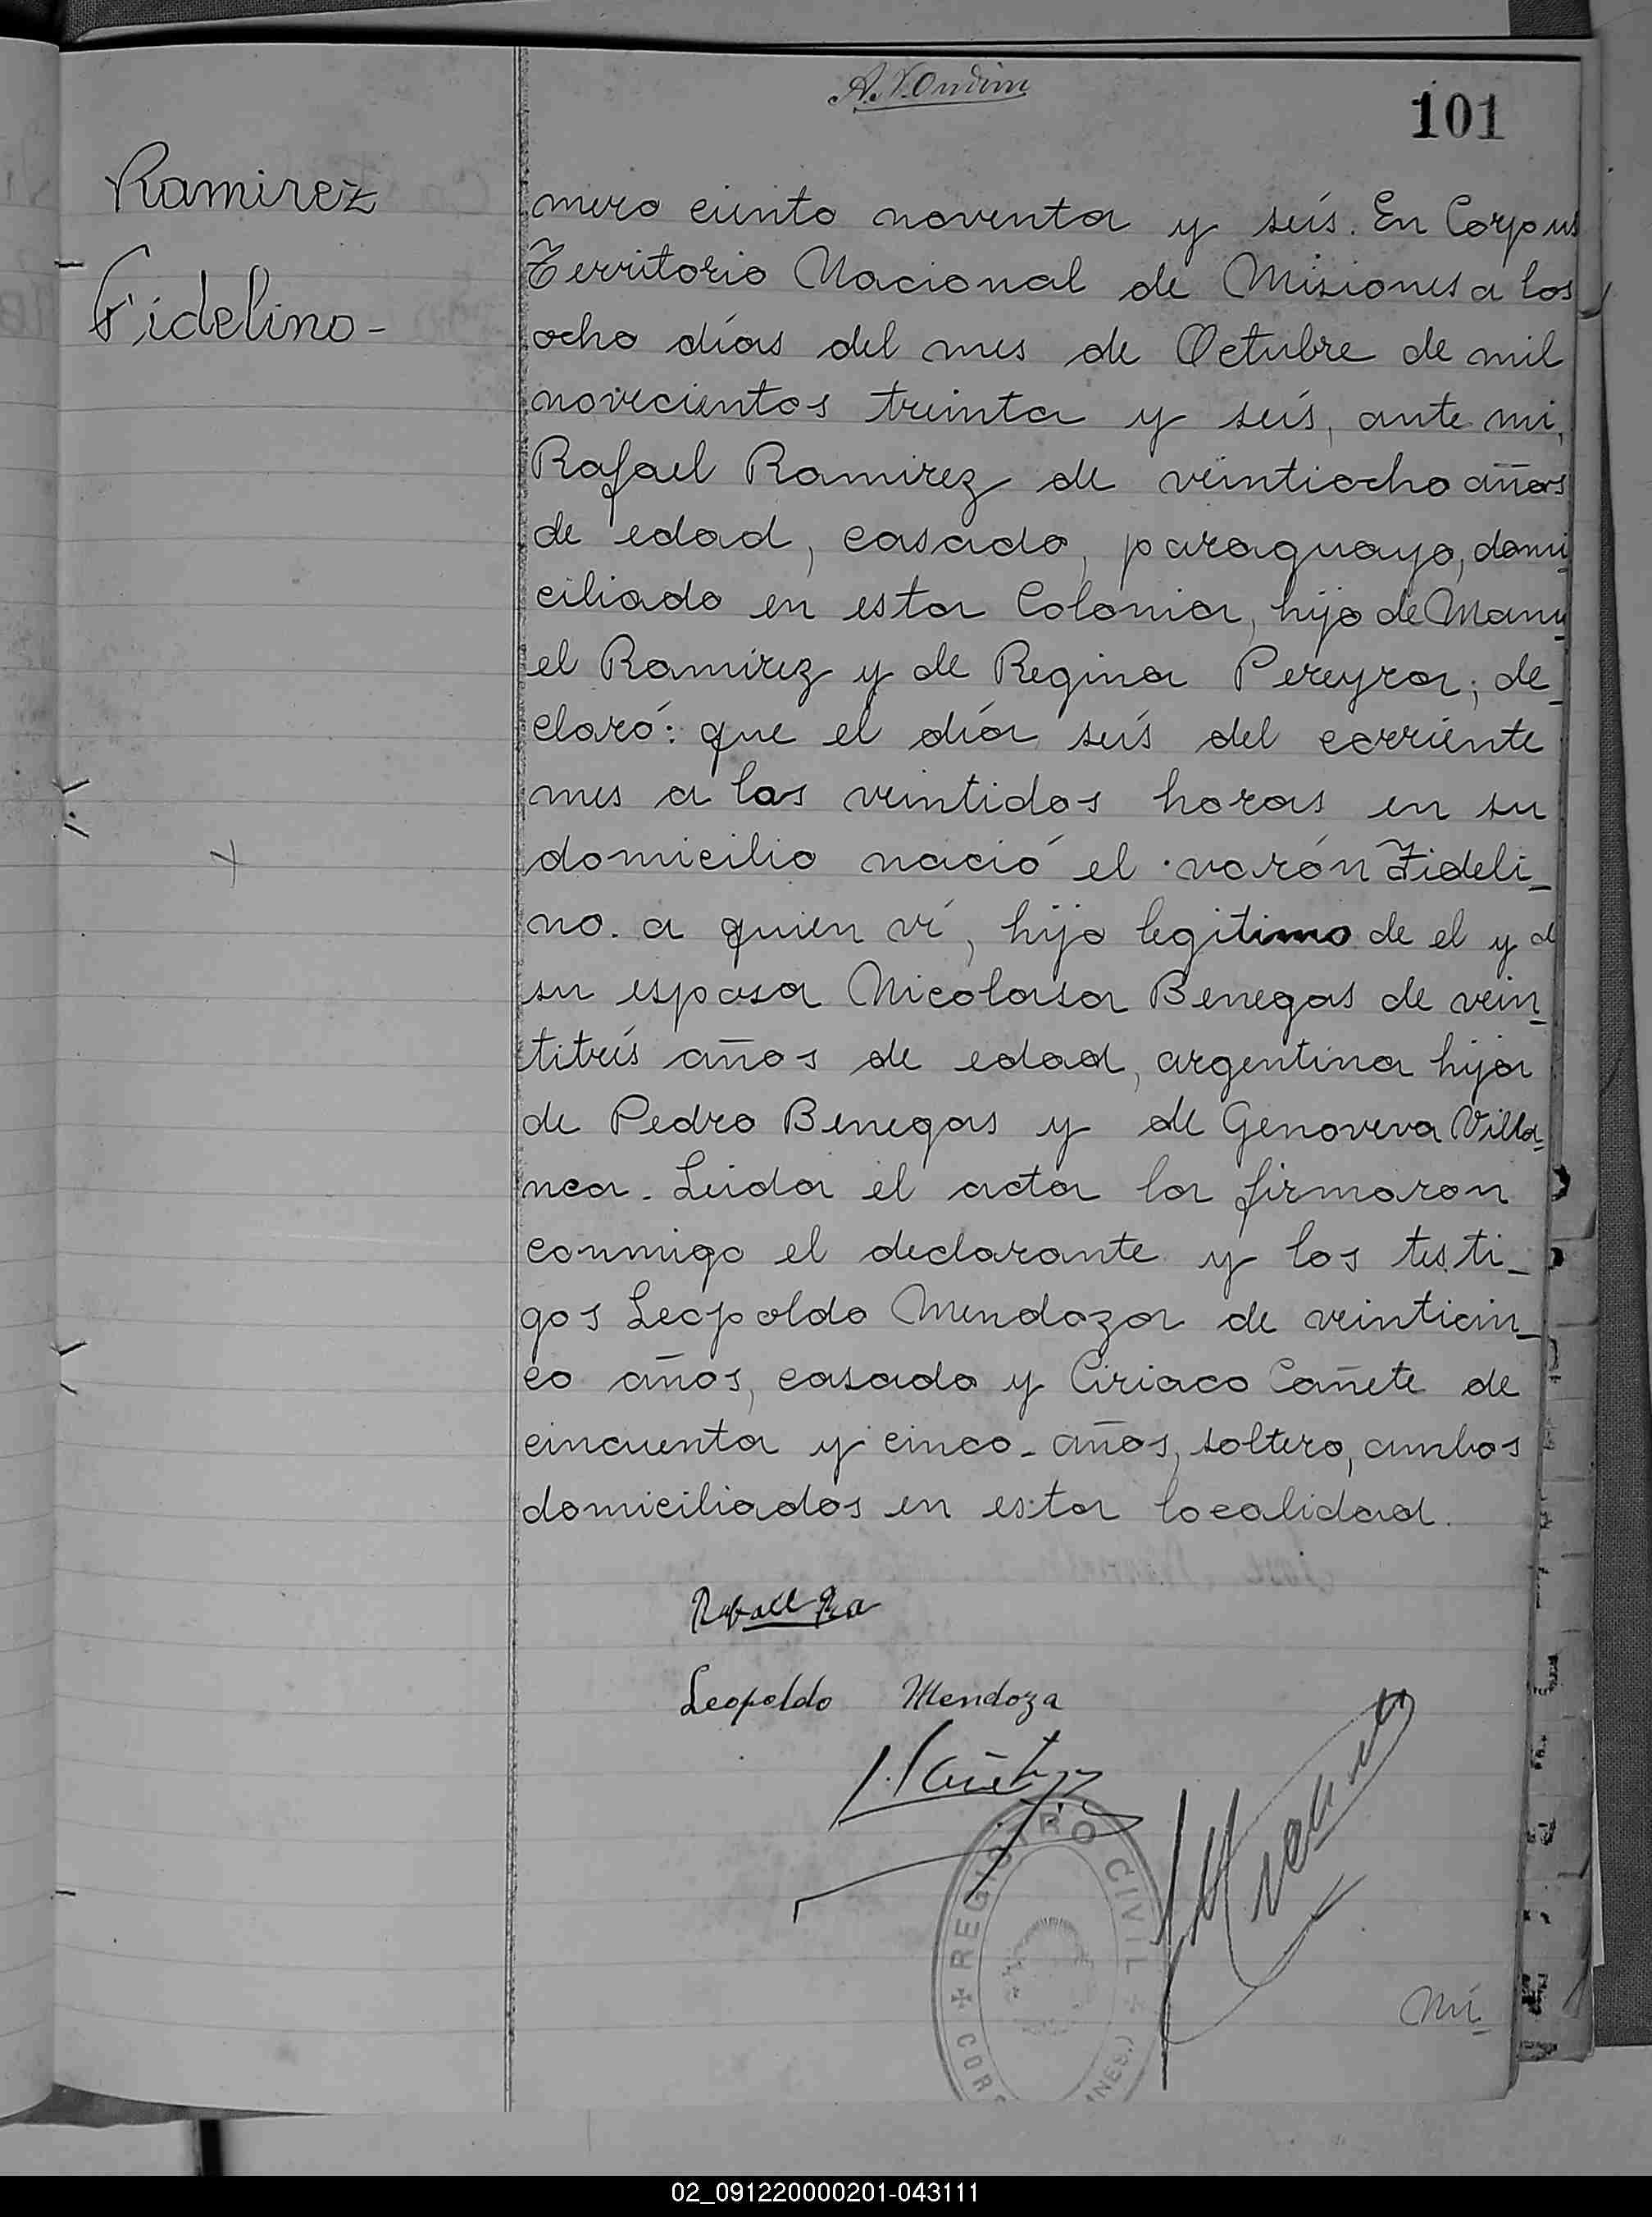 101
Ramirez
Fidelino-
mero ciento noventa y seís. En Corpus
Territorio Nacional de Misiones a los
ocho días del mes de Octubre de mil
novecientos treinta y seís, ante mi,
Rafael Ramirez de veintiocho años
de edad, casado, paraguayo, domi
ciliado en esta Colonia, hijo de Manu
el Ramirez y de Regina Pereyra; de_
claró: que el día seís del corriente
mes a las veintidos horas en su
domicilio nació el varón Fideli_
no. a quien ví, hijo legitimo de el y de
su esposa Nicolasa Benegas de vein_
titrés años de edad, argentina hija
de Pedro Benegas y de Genoveva Villa_
nea. Leida el acta la firmaron
conmigo el declarante y los testi_
gos Leopoldo Mendoza de veinticin_
co años, casado y Ciriaco Cañete de
cincuenta y cinco- años, soltero, ambos
domiciliados en esta localidad.
Leopoldo Mendoza
Cañete
REGISTRO CIVIL
Nú_
02_091220000201-043111